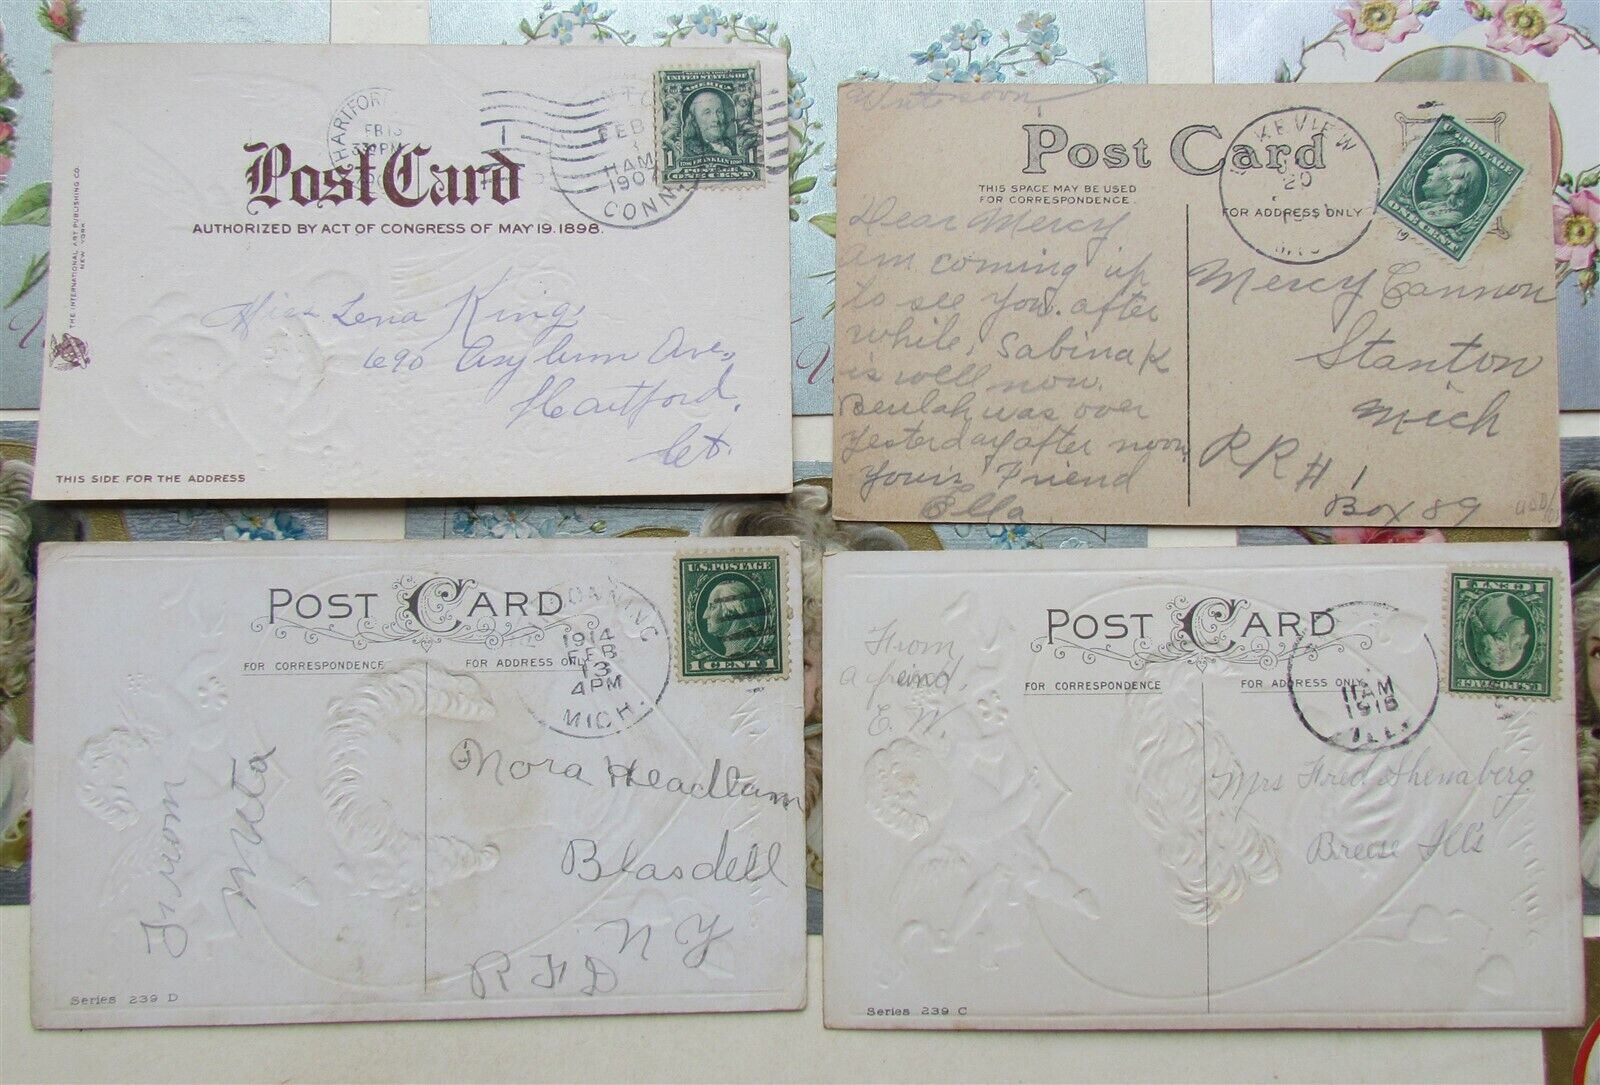 HARTFOR
FEB 13
330PM
FEB
11 AM
1907
CONN.
SERIES 1902
UNITED STATES OF
AMERICA
1 FRANKLIN 1
POSTAGE
ONE CENT
Post Card
AUTHORIZED BY ACT OF CONGRESS OF MAY 19, 1898.
THE INTERNATIONAL ART PUBLISHING CO.
NEW YORK
Miss Lena King,
690 Asylum Ave,
Hartford,
Ct.
THIS SIDE FOR THE ADDRESS
Write soon
Post Card
THIS SPACE MAY BE USED
FOR CORRESPONDENCE.
FOR ADDRESS ONLY
KEVIEW
20
U.S. POSTAGE
ONE CENT
Dear Mercy
Am coming up
to see you. after
while, Sabina K
is well now.
Beulah was over
Yesterday after noon
Your's Friend
Ella
Mercy Cannon
Stanton
Mich
RR # 1
Box 89
POST CARD
FOR CORRESPONDENCE
FOR ADDRESS ONLY
CONNING
1914
FEB
13
4 PM
MICH.
U.S. POSTAGE
1 CENT 1
From
Meta
Nora Headlam
Blasdell
NY
RFD
Series 239 D
POST CARD
FOR CORRESPONDENCE
FOR ADDRESS ONLY
11AM
1915
ILL.
U.S. POSTAGE
1 CENT 1
From
a friend,
E. W.
Mrs Fred Shenaberg
Breese Ill's
Series 239 C